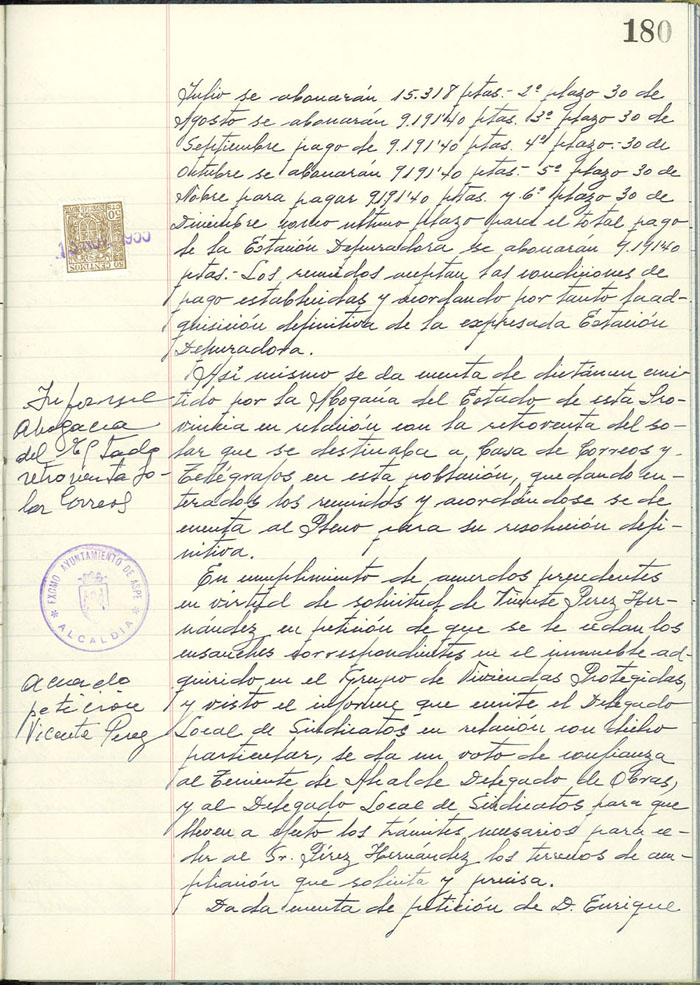 180
Julio se abonarán 15.318 ptas.- 2º plazo 30 de
Agosto se abonarán 9.191'40 ptas. 3º plazo 30 de
Septiembre pago de 9.191'40 ptas. 4º plazo.- 30 de
Octubre se abonarán 9191'40 ptas.- 5º plazo 30 de
Nobre para pagar 9191'40 ptas. y 6º plazo 30 de
Diciembre como ultimo plazo para el total pago
de la Estación Depuradora se abonaran 9.191'40
ptas.- Los reunidos aceptan las condiciones de
pago establecidas y acordando por tanto la ad-
quisición definitiva de la expresada Estación
Depuradora.
50 CTS
50 CENTIMOS
Asi mismo se da cuenta de dictámen emi-
tido por la Abogacia del Estado de esta Pro-
vincia en relación con la retroventa del so-
lar que se destinaba a Casa de Correos y
Telégrafos en esta población, quedando en-
terados los reunidos y acordándose se de
cuenta al Pleno para su resolución defi-
nitiva.
Informe
Abogacia
del Estado
retroventa So-
lar Correos
En cumplimiento de acuerdos precedentes
en virtud de solicitud de Vicente Perez Her-
nández en petición de que se le cedan los
ensanches correspondientes en el inmueble ad-
quirido en el Grupo de Viviendas Protegidas,
y visto el informe que emite el Delegado
Local de Sindicatos en relación con dicho
particular, se da un voto de confianza
al Teniente de Alcalde Delegado de Obras,
y al Delegado Local de Sindicatos para que
lleven a efecto los trámites necesarios para ce-
der al Sr. Pérez Hernández los terrenos de am-
pliación que solicita y precisa.
EXCMO AYUNTAMIENTO DE ASPE
* ALCALDIA *
Acuerdo
petición
Vicente Perez
Dada cuenta de petición de D. Enrique